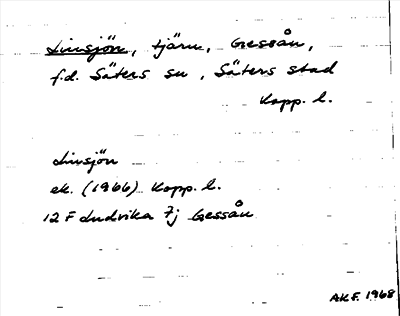 Linsjön, tjärn, Gessån,
f.d. Säters sn, Säters stad
Kopp. l.
Linsjön
ek. (1966) Kopp. l.
12 F Ludvika 7j Gessån
AKF. 1968